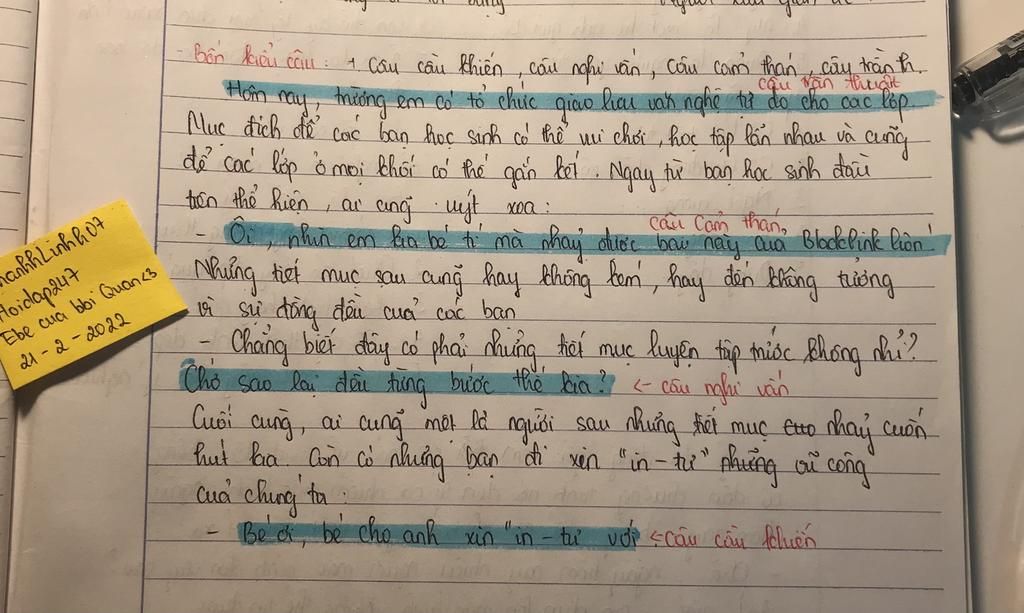 - Bốn kiểu câu: + Câu cầu khiến, câu nghi vấn, câu cảm thán, câu trần th.
câu trần thuật
Hôm nay, trường em có tổ chức giao lưu văn nghệ tự do cho các lớp.
Mục đích để các bạn học sinh có thể vui chơi, học tập lẫn nhau và cũng
để các lớp ở mọi khối có thể gắn kết. Ngay từ bạn học sinh đầu
tiên thể hiện, ai cũng uýt xoa:
câu cảm thán,
- Ôi, nhìn em kia bé tí mà nhảy được bài này của Blackpink luôn!
Những tiết mục sau cũng hay không kém, hay đến không tưởng
vì sự đồng đều của các bạn
- Chẳng biết đây có phải những tiết mục luyện tập trước không nhỉ?
Chớ sao lại đều từng bước thế kia? <- câu nghi vấn
Cuối cùng, ai cũng mệt lả người sau những tiết mục nhảy cuốn
hút kia. Còn có những bạn đi xin "in-tư" những vũ công
của chúng ta:
- Bé ơi, bé cho anh xin "in-tư" với <- câu cầu khiến
LinhH07
Hoidap247
Ebe cua bbi Quan<3
21-2-2022